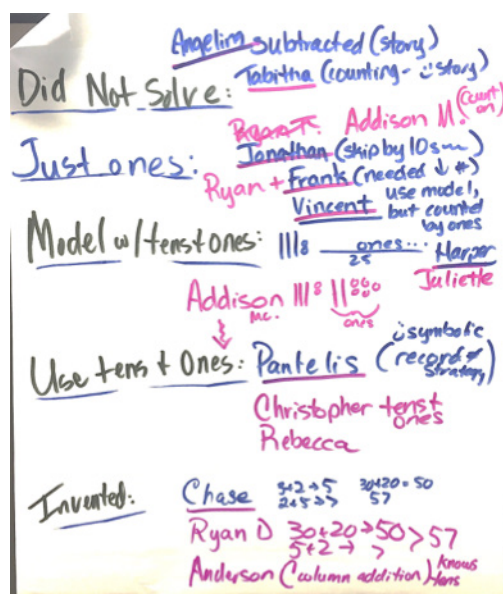 Angelina subtracted (story)
Did Not Solve: Tabitha (counting - story)
Ryan T. Addison M. (count on)
Just ones: Jonathan (skip by 10s
Ryan + Frank (needed ↓ #)
Vincent use model, but counted by ones
Model w/ tens + ones: |||8 ones... Harper
25
Juliette
Addison Mc. |||8 ||
ones
Use tens + Ones: Pantelis (symbolic record of strategy)
Christopher tens + ones
Rebecca
Invented: Chase 3+2→5 30+20=50
2+5→7 57
Ryan D 30+20→50>57
5+2→7
Anderson (column addition) knows tens